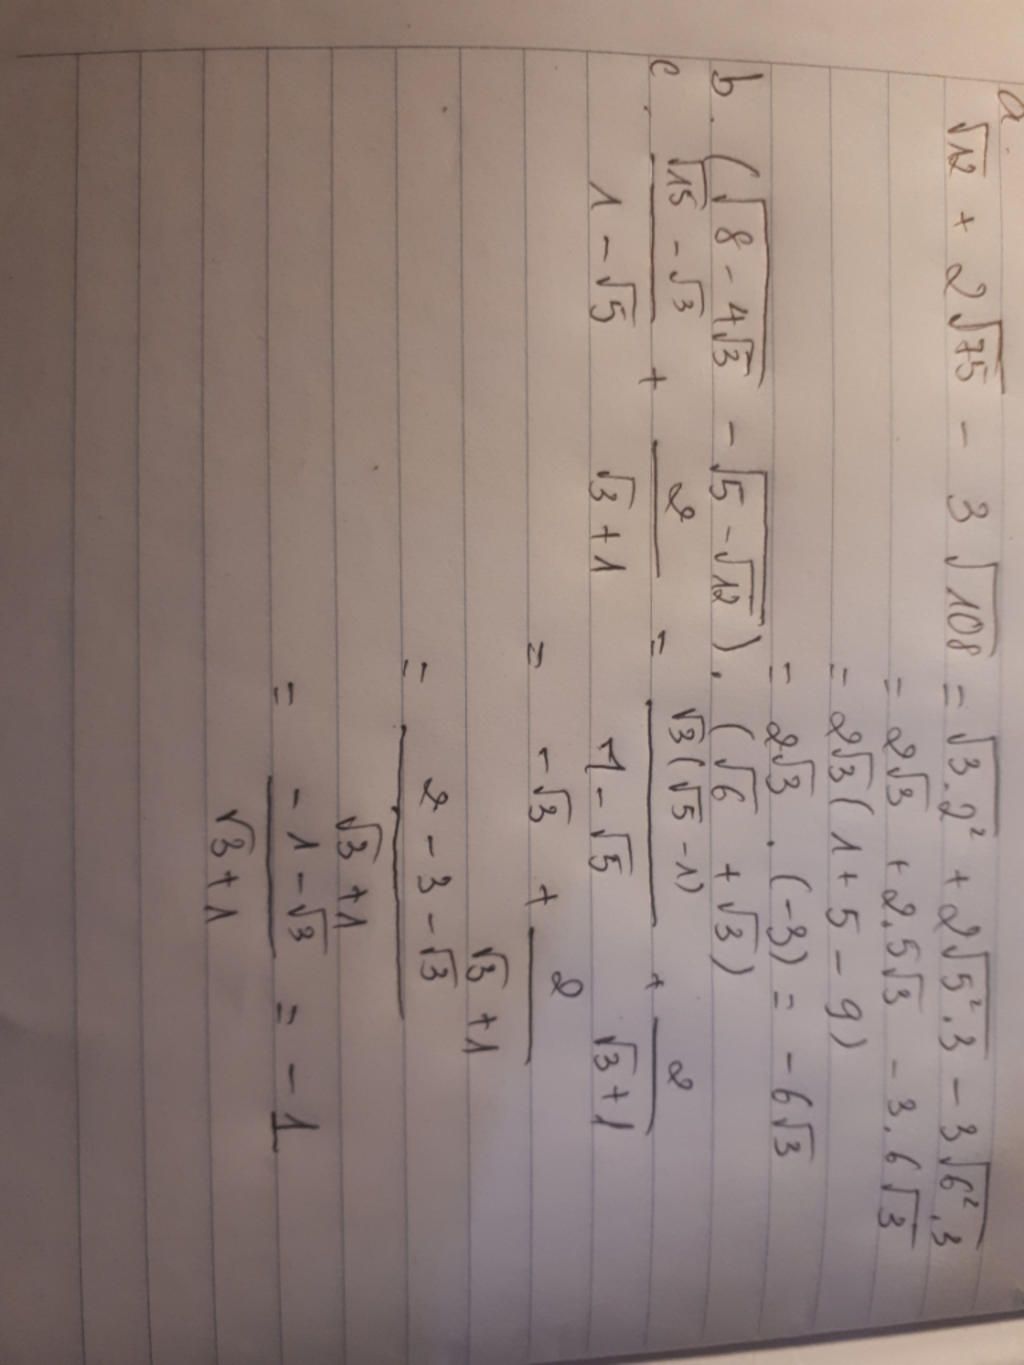 a.
√12 + 2√75 - 3√108 = √3.2² + 2√5².3 - 3√6².3
= 2√3 + 2.5√3 - 3.6√3
= 2√3 (1 + 5 - 9)
= 2√3 . (-3) = -6√3
b. (√(8 - 4√3) - √(5 - √12)) . (√6 + √3)
c. (√15 - √3)/(1 - √5) + 2/(√3 + 1) = √3(√5 - 1)/(1 - √5) + 2/(√3 + 1)
= -√3 + 2/(√3 + 1)
= (2 - 3 - √3)/(√3 + 1)
= (-1 - √3)/(√3 + 1) = -1